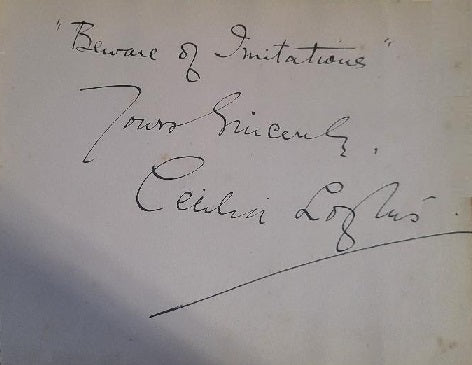 "Beware of Imitations"
Yours Sincerely.
Cecilia Loftus